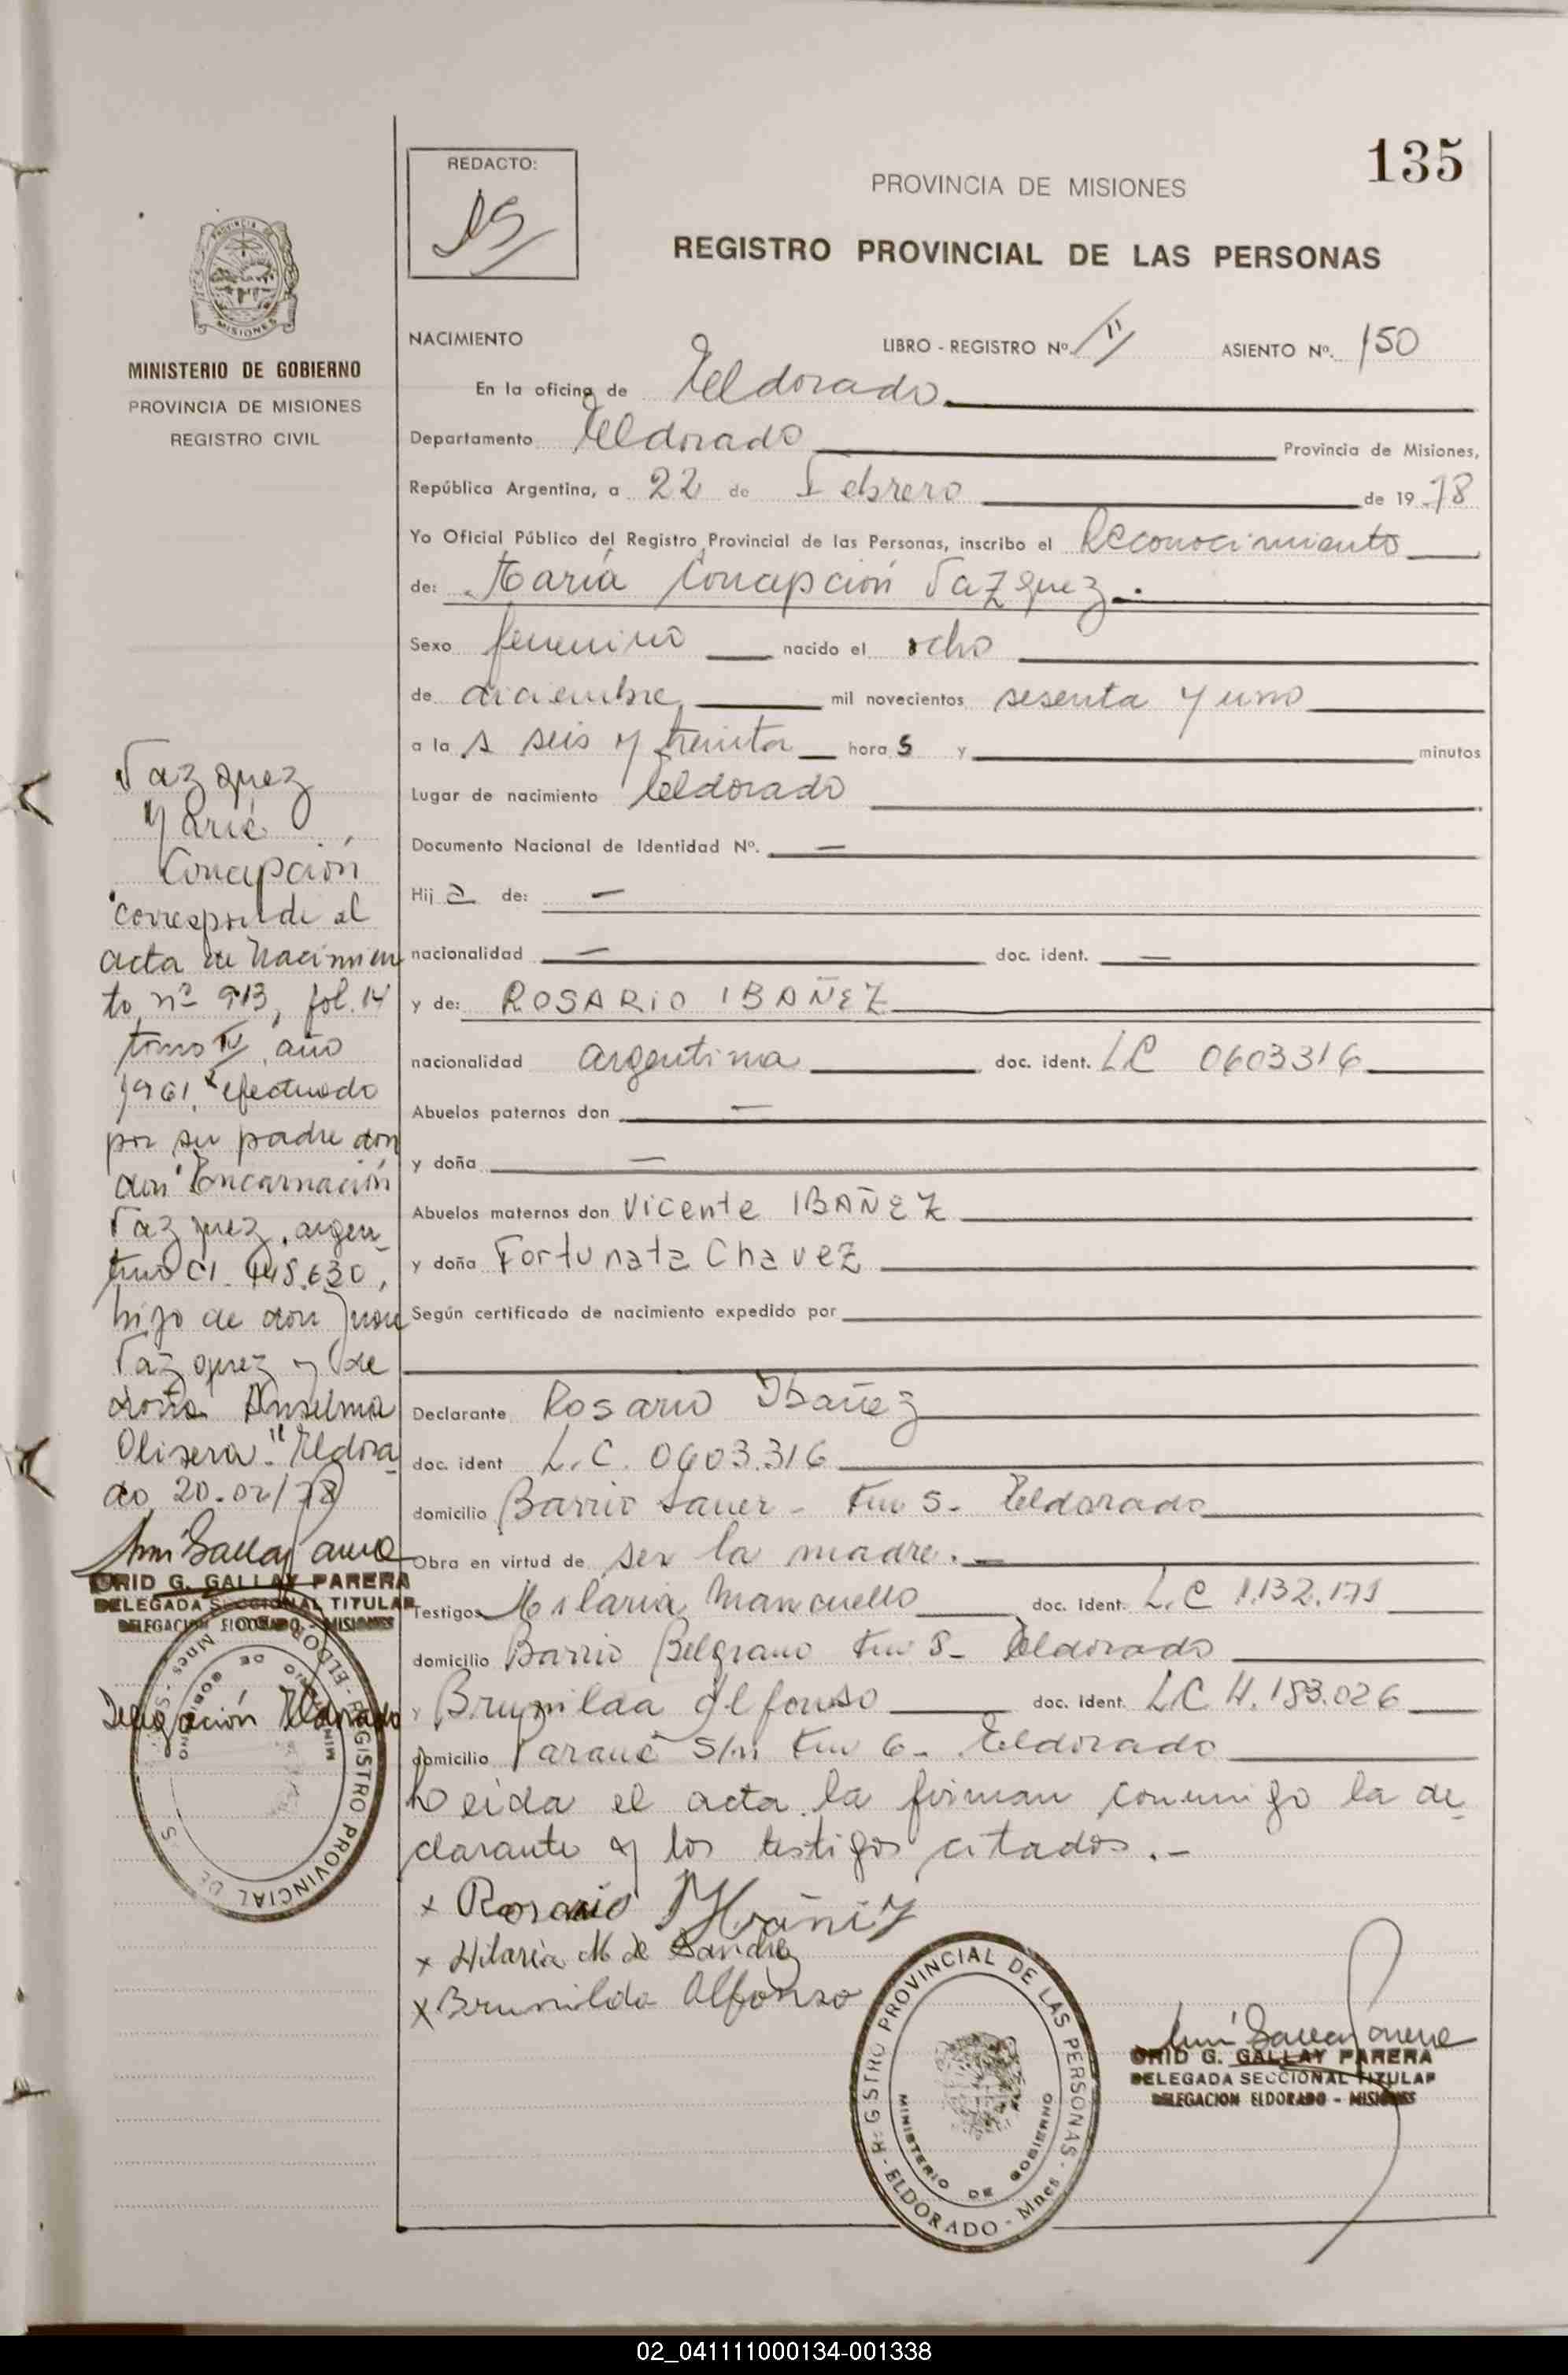 135
REDACTO:
PROVINCIA DE MISIONES
REGISTRO PROVINCIAL DE LAS PERSONAS
MINISTERIO DE GOBIERNO
PROVINCIA DE MISIONES
REGISTRO CIVIL
NACIMIENTO LIBRO - REGISTRO Nº II ASIENTO Nº. 150
En la oficina de Eldorado
Departamento Eldorado Provincia de Misiones,
República Argentina, a 22 de Febrero de 19 78
Yo Oficial Público del Registro Provincial de las Personas, inscribo el Reconocimiento
de: María Concepción Vazquez.
Sexo femenino nacido el ocho
de diciembre mil novecientos sesenta y uno
a la s seis y treinta hora s y minutos
Lugar de nacimiento Eldorado
Documento Nacional de Identidad Nº. —
Hij a de: —
nacionalidad — doc. ident. —
y de: ROSARIO IBAÑEZ
nacionalidad argentina doc. ident. LC 0603316
Abuelos paternos don —
y doña —
Abuelos maternos don Vicente IBAÑEZ
y doña Fortunata Chavez
Según certificado de nacimiento expedido por
Declarante Rosario Ibañez
doc. ident L.C. 0603.316
domicilio Barrio Sauer - Km 5- Eldorado
Obra en virtud de ser la madre.
Testigos Hilaria Mancuello doc. Ident. L.C 1.132.171
domicilio Barrio Belgrano Km 8- Eldorado
y Brunilda Alfonso doc. Ident. LC 4.183.026
domicilio Paraná S/n Km 6- Eldorado
Leida el acta la firman conmigo la de
clarante y los testigos citados.-
x Rosario Ibáñiz
x Hilaria M de
x Brunilda Alfonso
Vazquez
María
Concepción
"corresponde al
acta de Nacimien
to nº 913, fol. 14
tomo IV año
1961, efectuado
por su padre don
don Encarnación
Vazquez, argen-
tino CI. 448.630,
hijo de don Juan
Vazquez y de
doña Anselma
Olivera." Eldora
do 20-02/78
GRID G. GALLAY PARERA
DELEGADA SECCIONAL TITULAR
DELEGACION ELDORADO - MISIONES
Delegación Eldorado
REGISTRO PROVINCIAL DE
ELDORADO - Mnes
MINISTERIO DE GOBIERNO
REGISTRO PROVINCIAL DE LAS PERSONAS - ELDORADO - Mnes
MINISTERIO DE GOBIERNO
GRID G. GALLAY PARERA
DELEGADA SECCIONAL TITULAR
DELEGACION ELDORADO - MISIONES
02_041111000134-001338